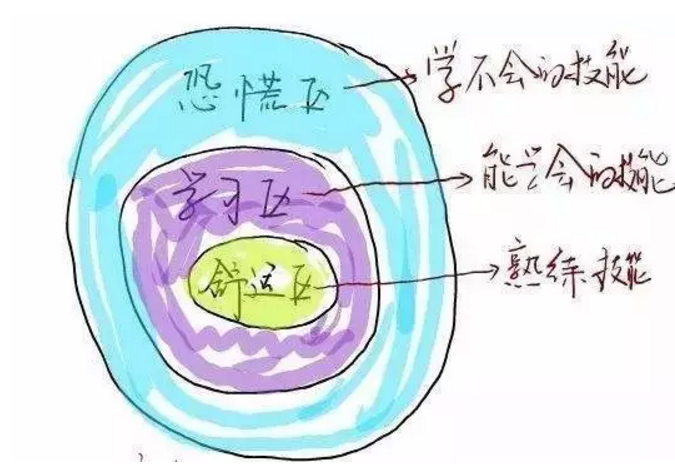 恐慌区 学不会的技能
学习区 能学会的技能
舒适区 熟练技能